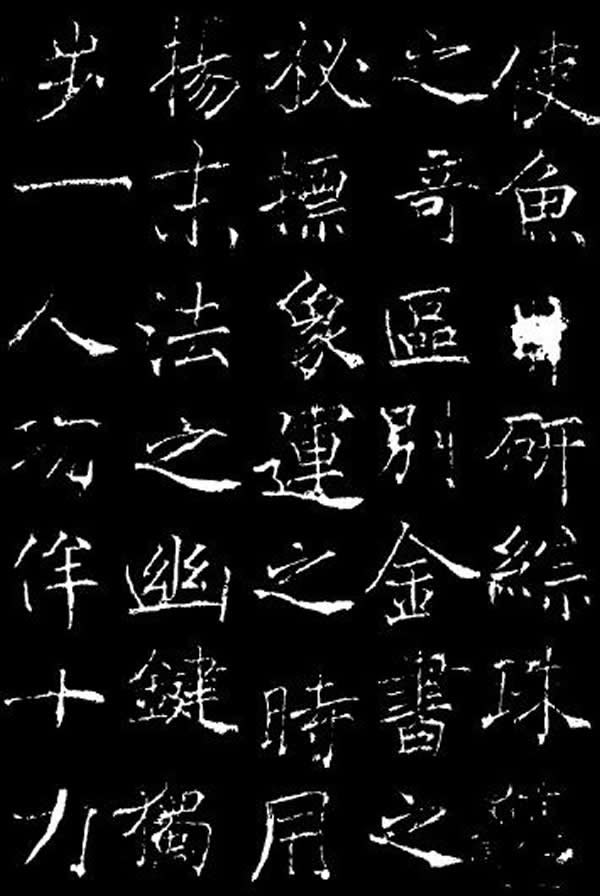 使魚研綜珠
之哥區別金書之
秘摽象運之時用
揚末法之幽鍵獨
步一人功侔十力